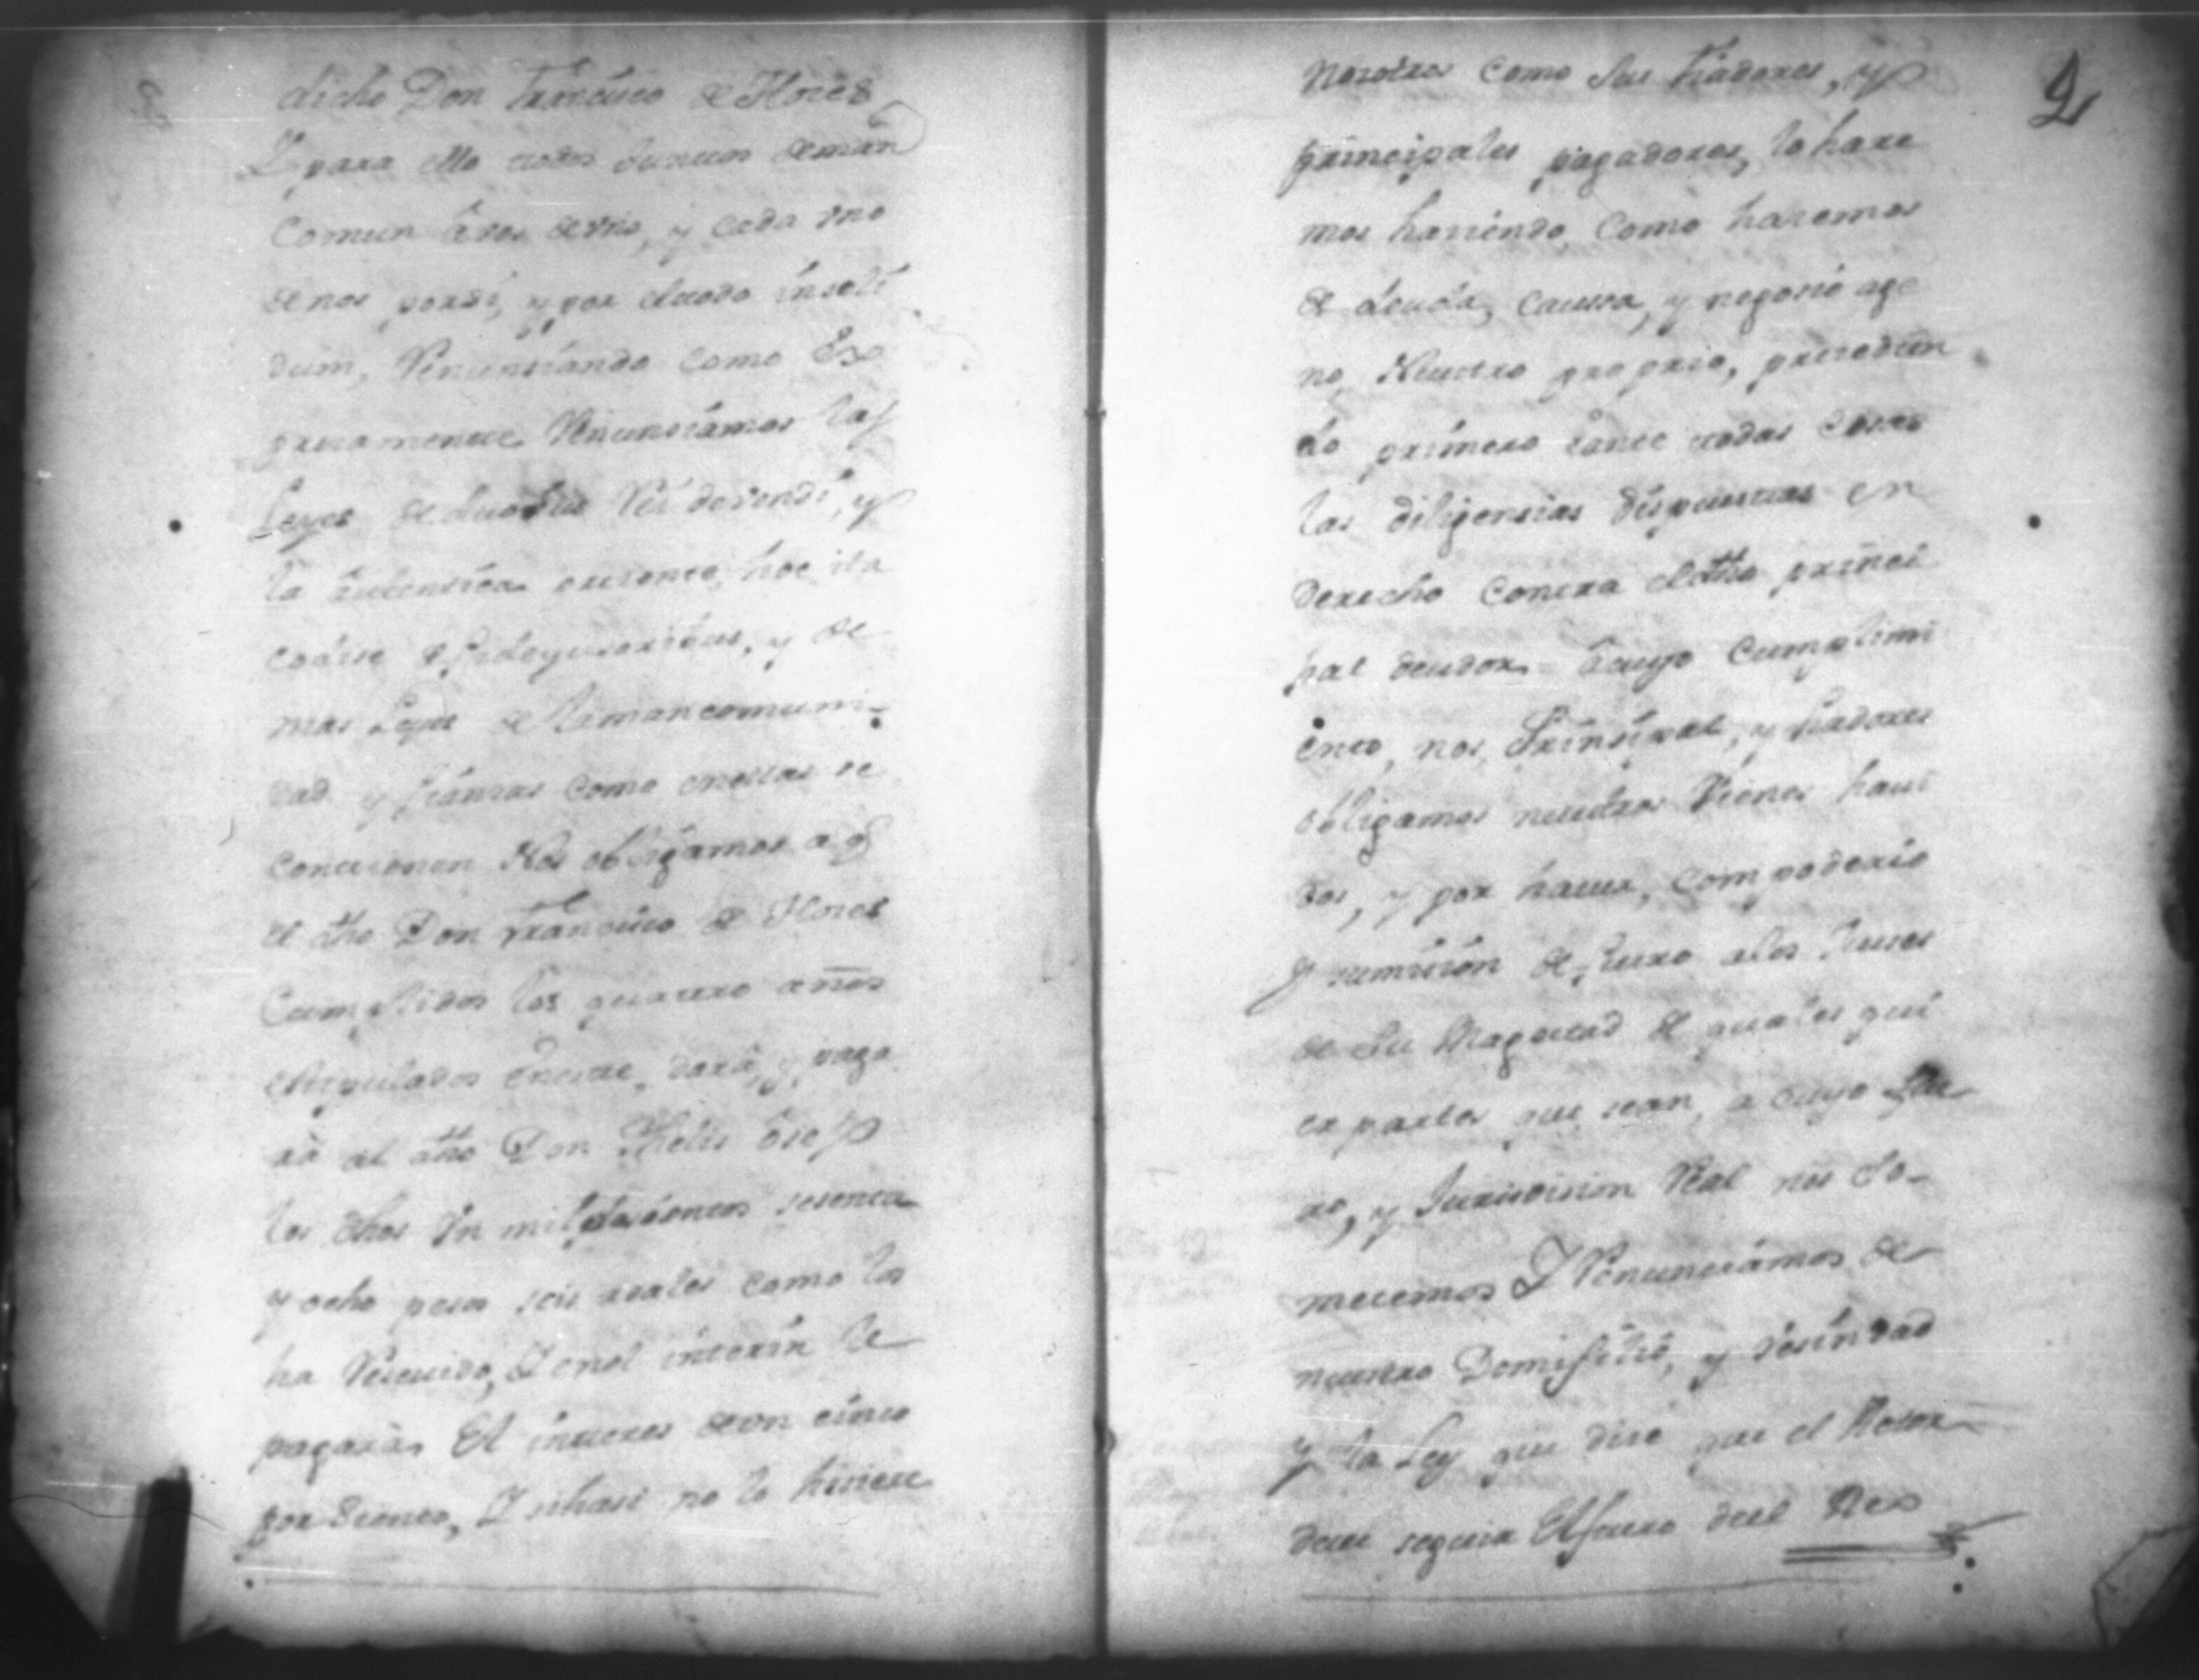 dicho Don Francisco de Flores
Y para ello todos Juntos deman
comun â vos de vno, y cada vno
de nos por si, y por el todo insoli
dum, Renunsiando como Ex
presamente Renunsiamos las
Leyes de duobus Rei devendi, y
la autentica presente, hoc ita
codise de fide yusoribus, y de
mas Leyes de la mancomuni-
dad y fiansas como en ellas se
contienen Nos obligamos a q̃
el dho Don Francisco de Flores
Cumplidos los quatro años
estipulados en este, dará, y paga
rà al dho Don
los dhos Un mil dosientos sesenta
y ocho pesos seis reales como los
ha Resevido, Y en el interin le
pagarà El interes de vn sinco
por siento, Y si hasi no lo hisiere
2
nosotros como sus fiadores, y
principales pagadores, lo hare
mos hasiendo como hasemos
de deuda, causa, y negosio age
no Nuestro proprio, presedien
do primero ante todas cosas
las diligensias dispuestas en
derecho contra el dho prinsi
pal deudor â cuyo cumplimi
ento, nos Prinsipal, y fiadores
obligamos nuestros Vienes havi
dos, y por haver, com poderio
y sumision de fuero a los Jueses
de Su Magestad de quales qui
er partes que sean, a cuyo fue
ro, y Jurisdision Real nos So-
metemos Y Renunsiamos de
nuestro Domisilio, y vesindad
y la Ley que dise que el Actor
deve seguir El fuero del Reo